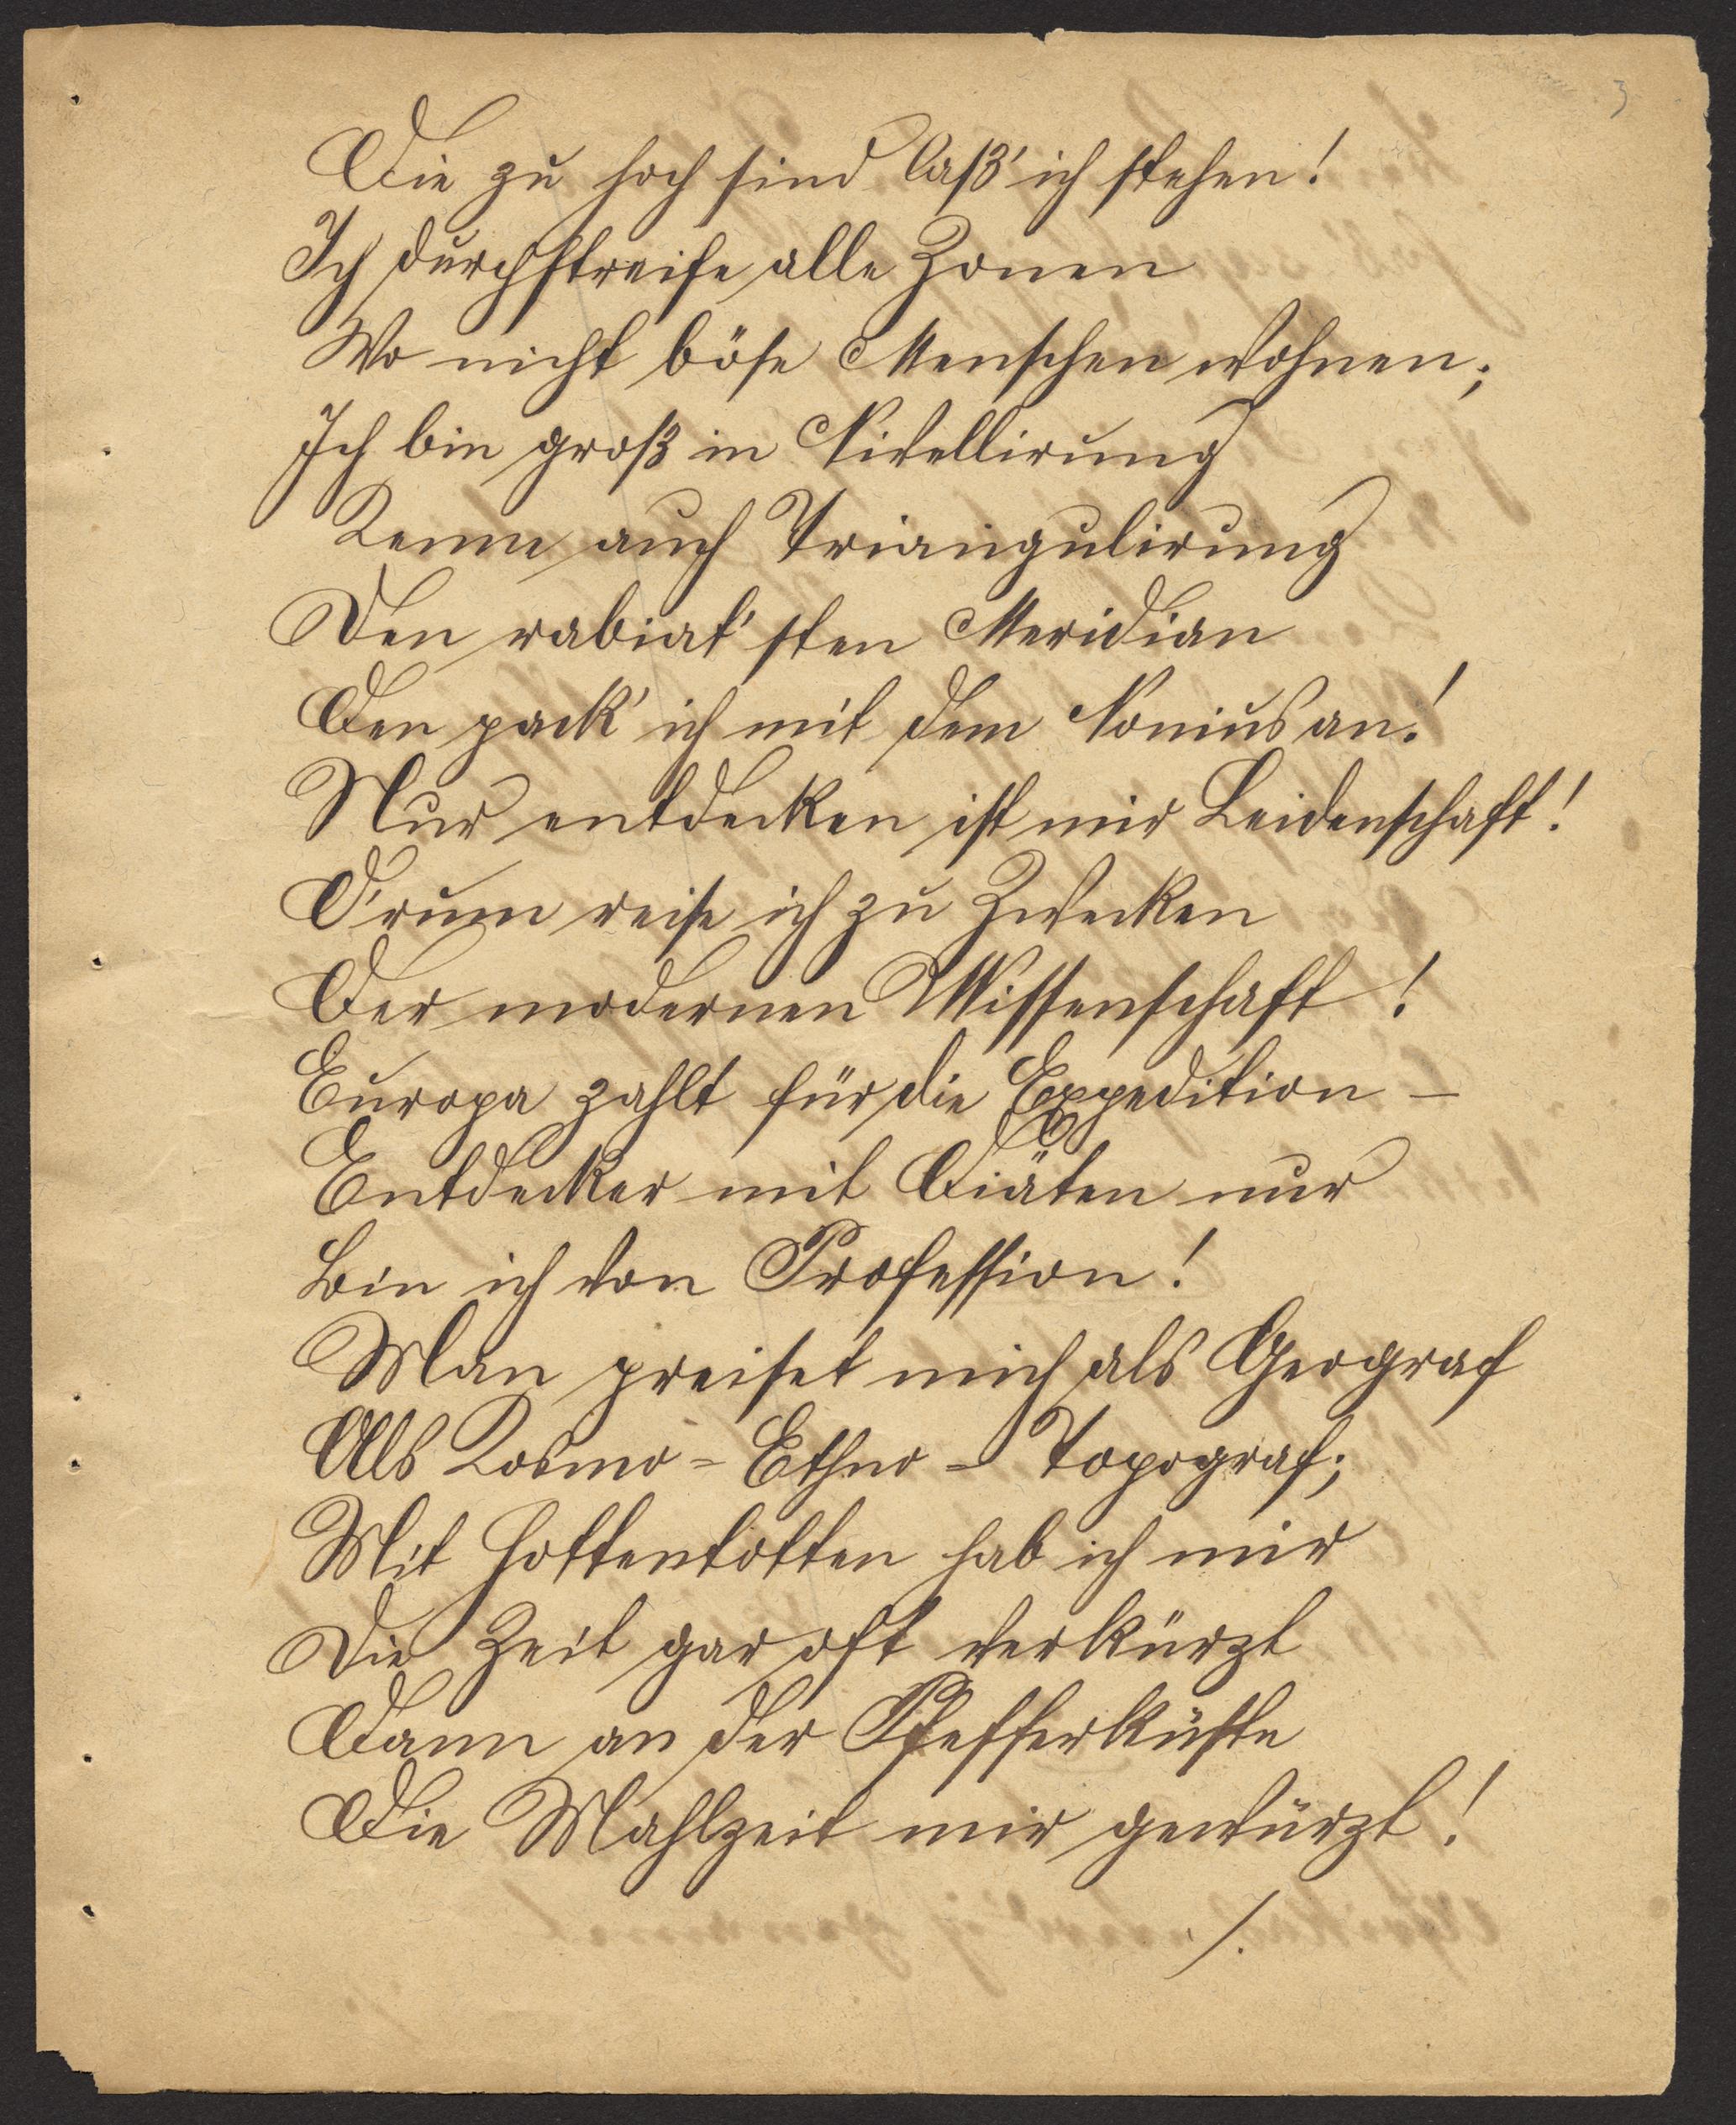 3
Die zu hoch sind laß' ich stehen!
Ich durchstreife alle Zonen
Wo nicht böse Menschen wohnen;
Ich bin groß in Nivellirung
Kenne auch Triangulirung
Den rabiat'sten Meridian
Den pack' ich mit dem Nonius an!
Nur entdecken ist mir Leidenschaft!
D'rum reise ich zu Zwecken
Der modernen Wissenschaft!
Europa zahlt für die Expedition –
Entdecker mit Diäten nur
Bin ich von Profession!
Man preiset mich als Geograf
Als Kosmo-Ethno-Topograf;
Mit Hottentotten hab ich mir
Die Zeit gar oft verkürzt
Dann an der Pfefferküste
Die Mahlzeit mir gewürzt!
./.